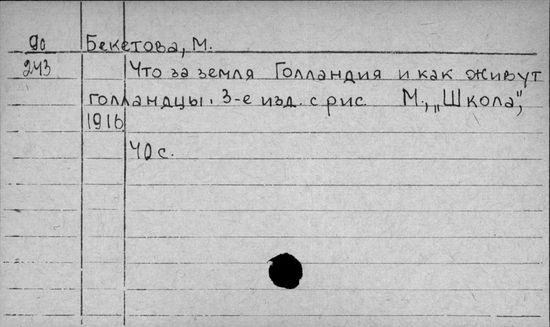 90 Бекетова, М.
243 Что за земля Голландия и как живут
голландцы. 3-е изд. с рис. М., „Школа”,
1916
40 с.